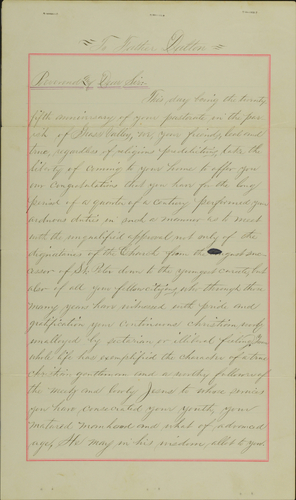 To Father Dalton
Reverend & Dear Sir
This day being the twenty
fifth anniversary of your pastorate in the par
ish of Grass Valley, we, your friends, tried and
true, regardless of religious predilections, take the
liberty of coming to your home to offer you
our congratulations that you have for the long
period of a quarter of a century performed your
arduous duties in such a manner as to meet
with the unqualified approval not only of the
dignitaries of the Church from the august suc
cessor of St. Peter down to the youngest curate, but
also of all your fellow citizens, who through these
many years have witnessed with pride and
gratification your continued christian
unalloyed by sectarian or illiberal feeling. Your
whole life has exemplified the character of a true
christian gentleman and a worthy follower of
the meek and lowly Jesus to whose service
you have consecrated your youth, your
matured manhood and what of advanced
age, He may in his wisdom, allot to you.